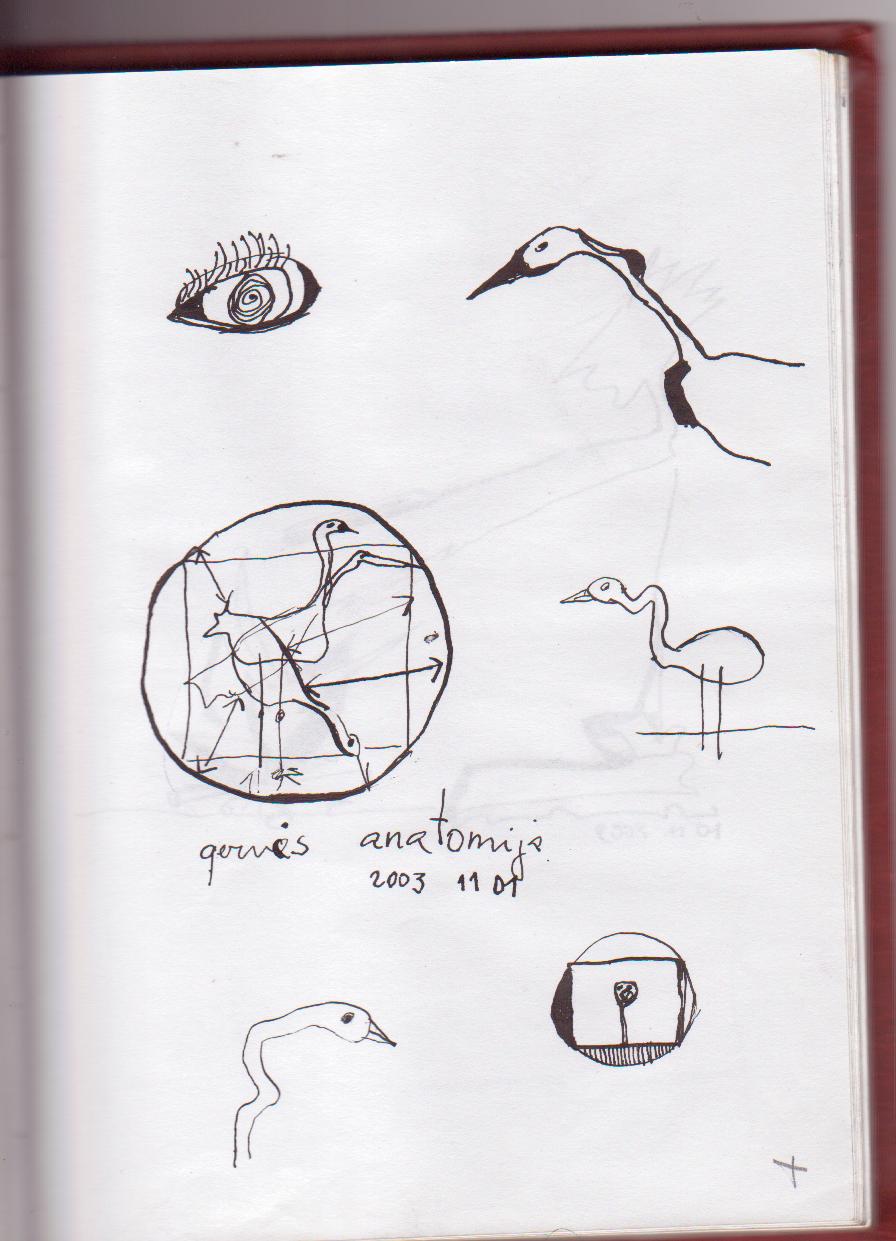 gervės anatomija
2003 11 01